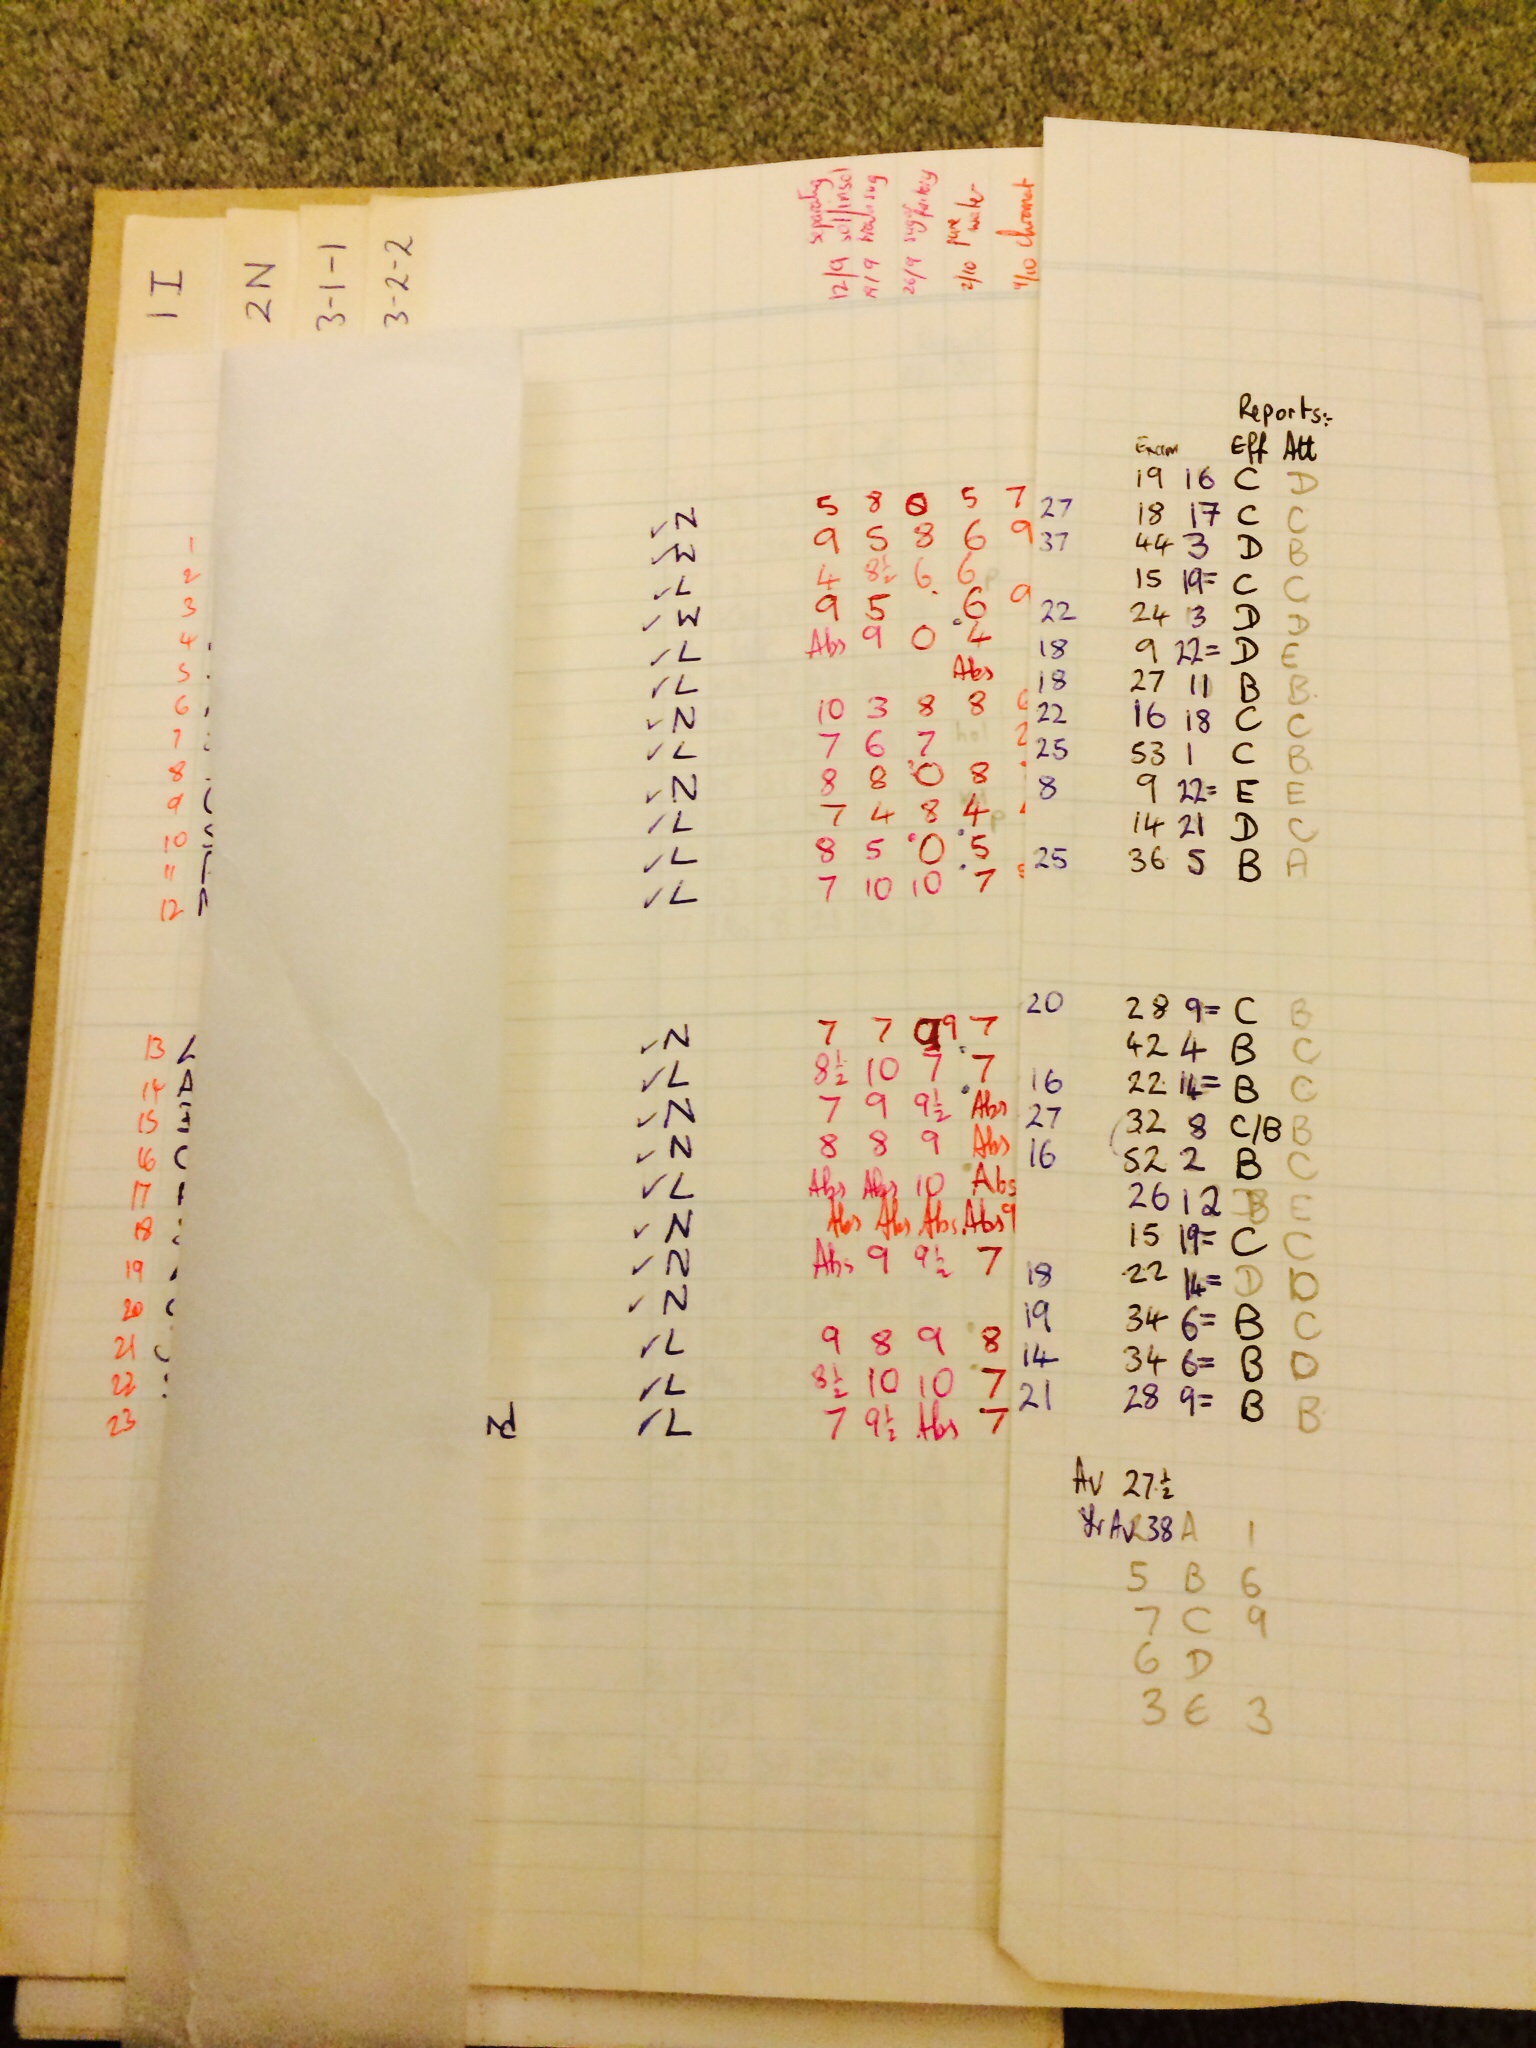 1 I
2 N
3-1-1
3-2-2
12/9 separating sol/insol
19/9
26/9 sugar factory
2/10 pure water
4/10 chromat
Reports:-
Exam Eff Att
19 16 C D
1 ✓ N 5 8 0 5 7 27 18 17 C C
2 ✓ W 9 5 8 6 9 37 44 3 D B
3 ✓ L 4 8½ 6 6 15 19= C C
4 ✓ W 9 5 6 9 22 24 3 D D
5 ✓ L Abs 9 0 4 18 9 22= D E
6 ✓ L Abs 18 27 11 B B
7 ✓ N 10 3 8 8 22 16 18 C C
8 ✓ L 7 6 7 25 53 1 C B
9 ✓ N 8 8 0 8 8 9 22= E E
10 ✓ L 7 4 8 4 14 21 D C
11 ✓ L 8 5 0 5 25 36 5 B A
12 ✓ L 7 10 10 7
20 28 9= C B
13 ✓ N 7 7 9 7 42 4 B C
14 ✓ L 8½ 10 7 7 16 22 14= B C
15 ✓ N 7 9 9½ Abs 27 32 8 C/B B
16 ✓ N 8 8 9 Abs 16 52 2 B C
17 ✓ L Abs Abs 10 Abs 26 12 B E
18 ✓ N Abs Abs Abs Abs 9 15 19= C C
19 ✓ N Abs 9 9½ 7 18 22 14= D D
20 ✓ N 19 34 6= B C
21 ✓ L 9 8 9 8 14 34 6= B D
22 ✓ L 8½ 10 10 7 21 28 9= B B
23 ✓ L 7 9½ Abs 7
Av 27½
Yr Av 38 A 1
5 B 6
7 C 9
6 D
3 E 3